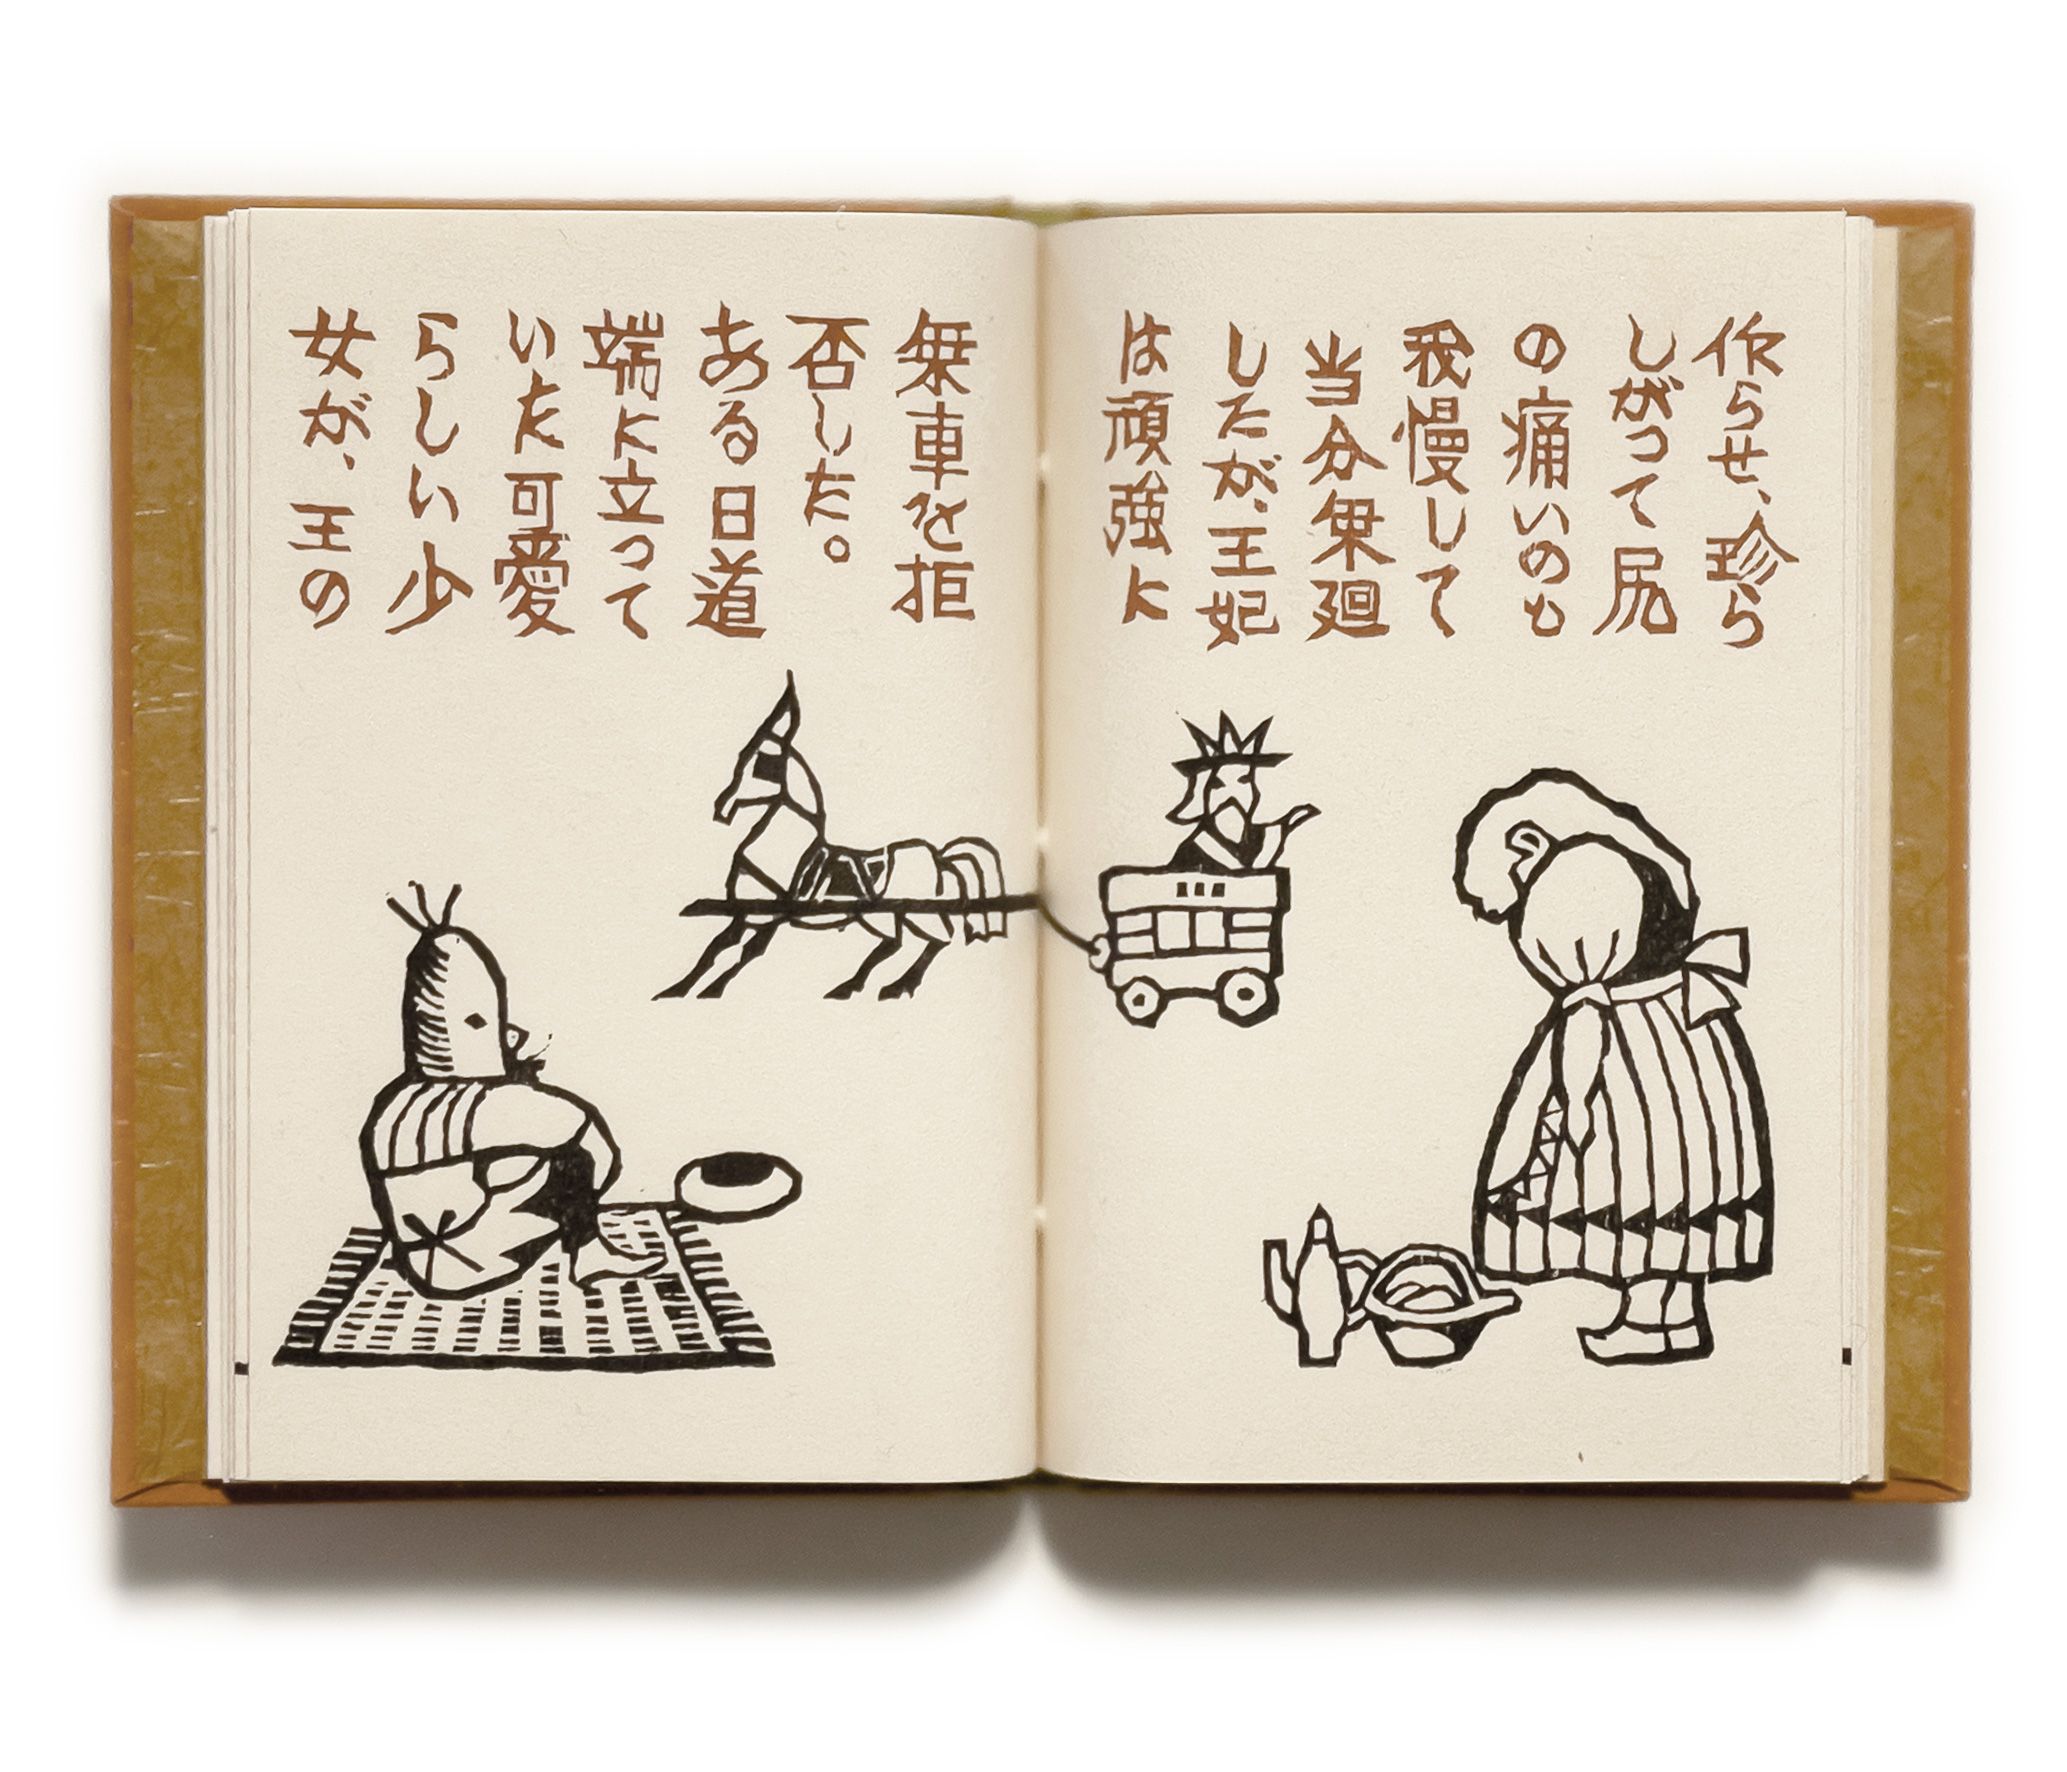 作らせ、珍ら
しがって尻
の痛いのも
我慢して
当分乗廻
したが、王妃
は頑強に
乗車を拒
否した。
ある日道
端に立って
いた可愛
らしい少
女が、王の